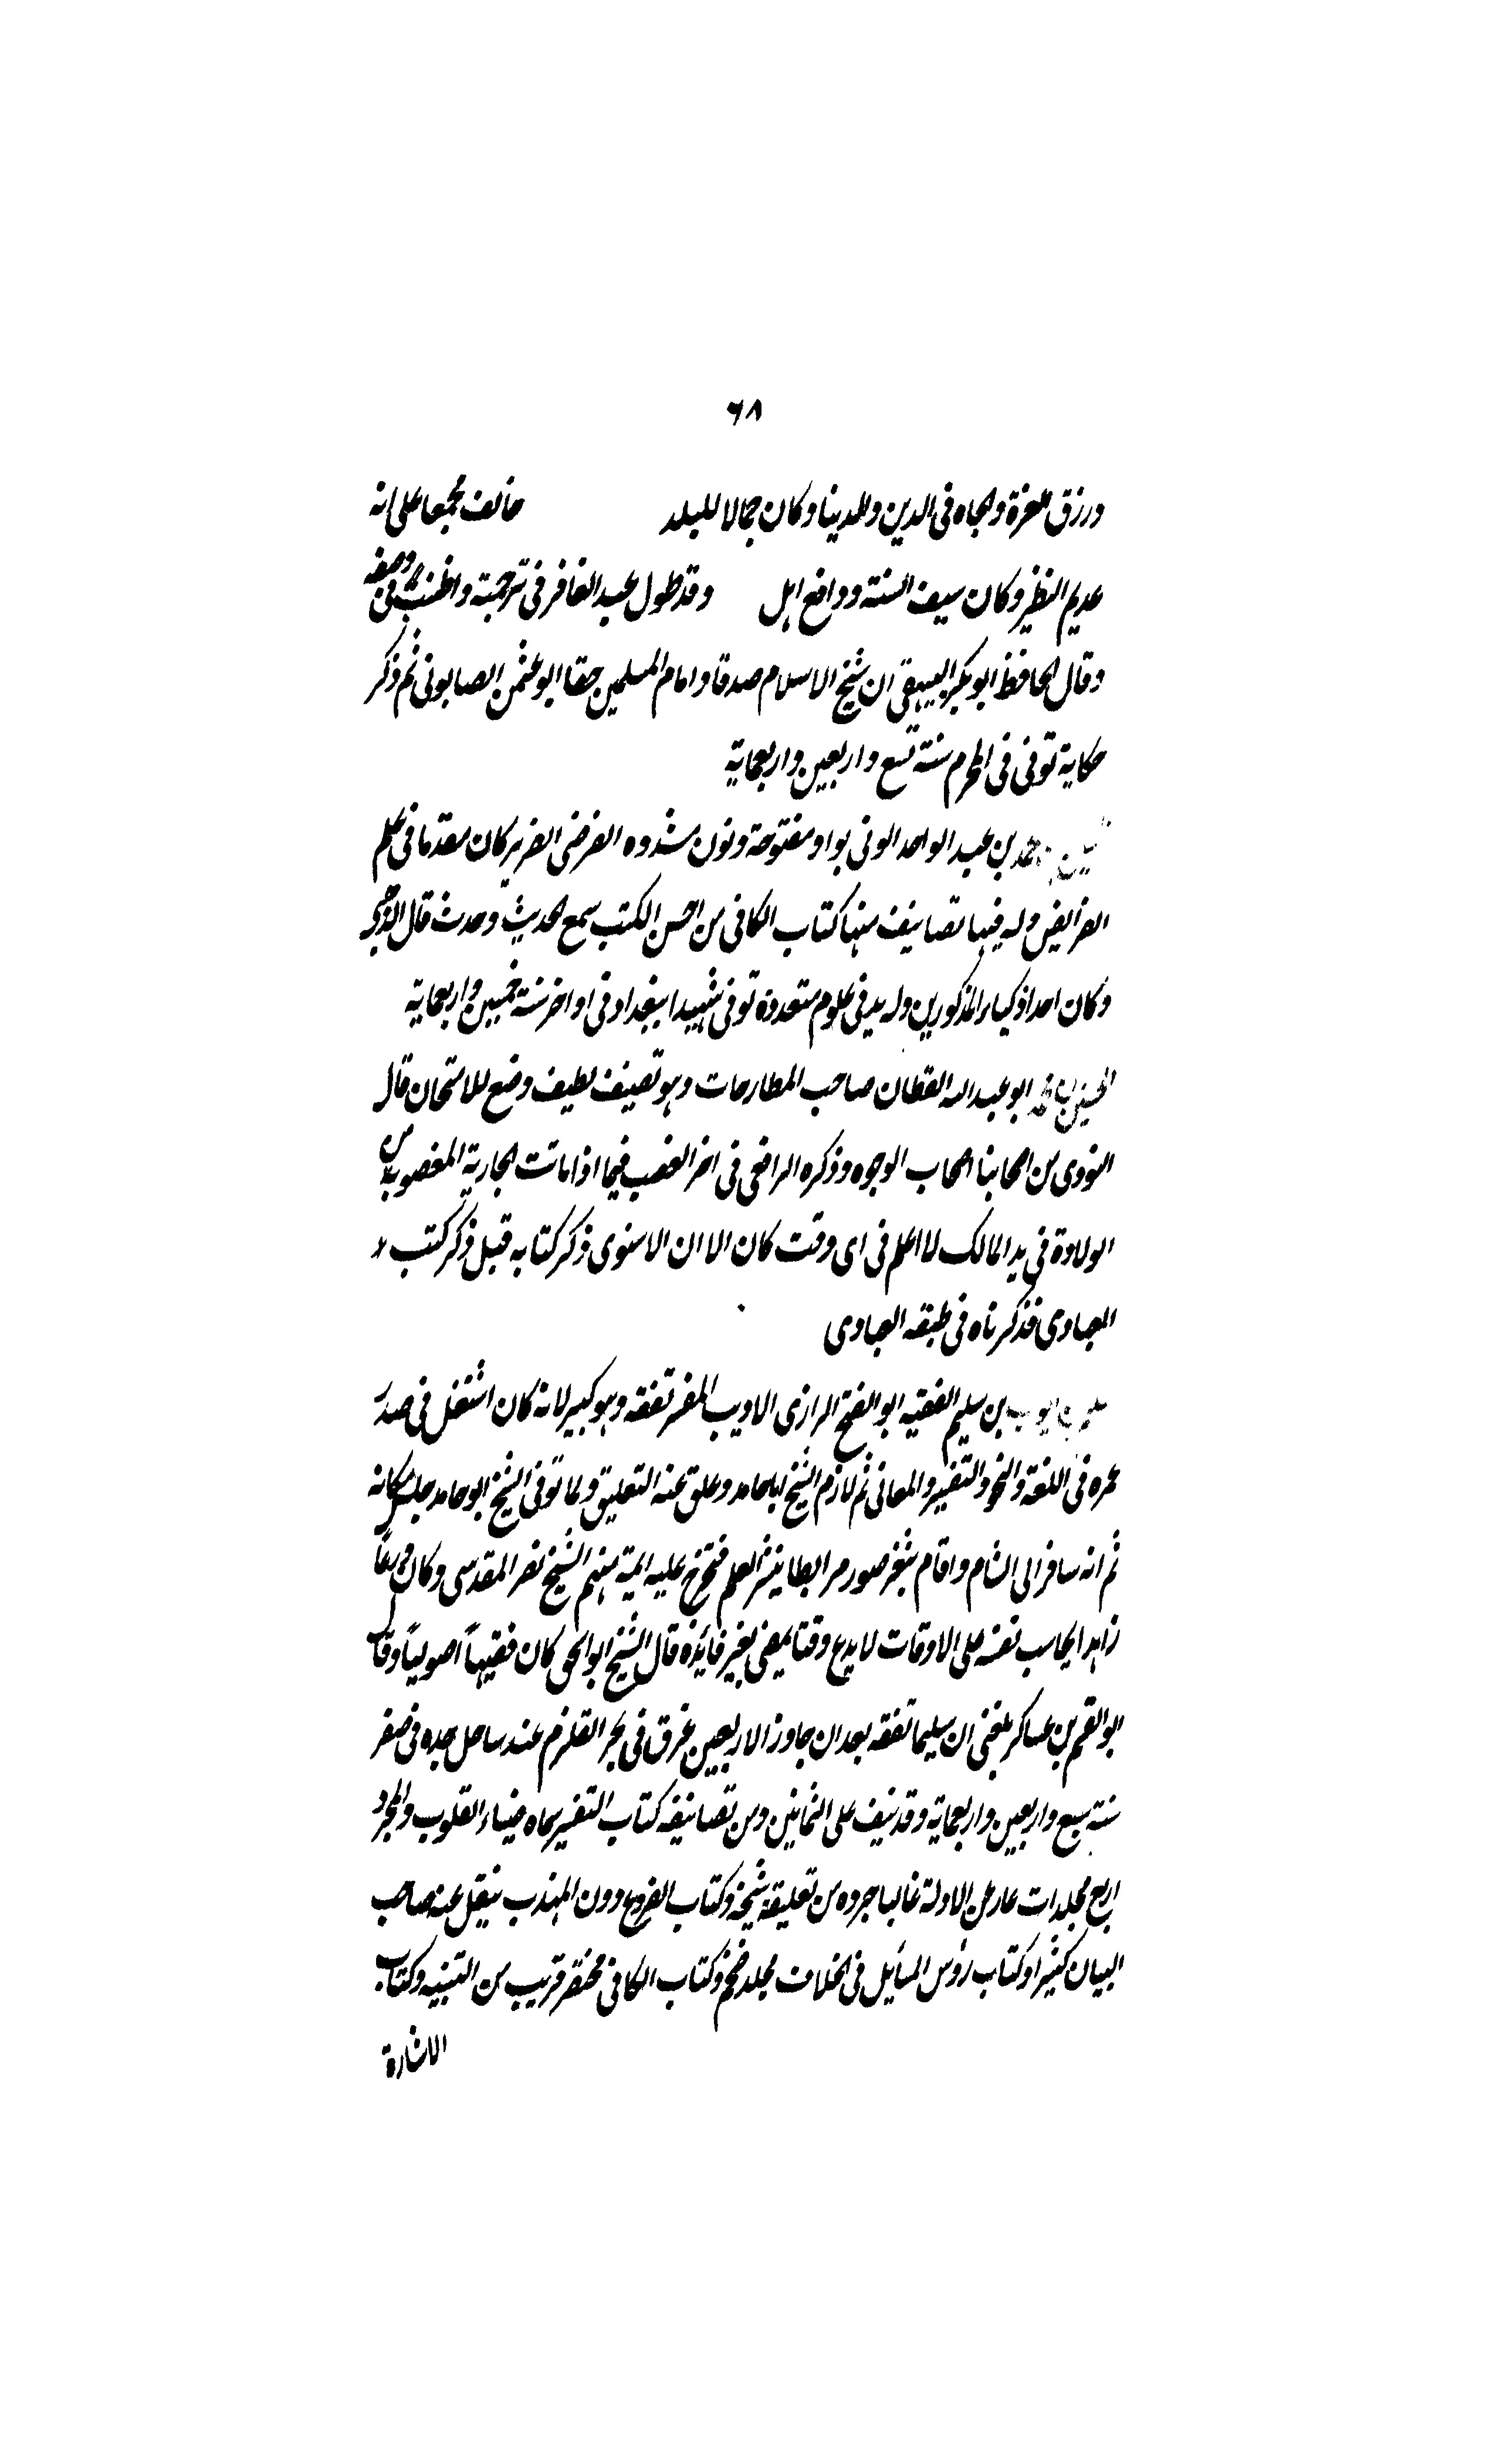 ٦٨
ورزق العزة والجاه فى الدين والدينا وكان جمالا للبلد مخالف مجمعا على انه
عديم النظير وكان سيف السنة ودافع اہل وقد طول عبد الغافر فى ترجمتة واطنب فى وصفه
وقال الحافظ ابو بكر البيهقى ان شيخ الاسلام صدقا وامام المسلمين حقا ابو عثمن الصابونى ثم ذكر
حكاية توفى فى المحرم سنة تسع واربعين واربعماية
محمد بن عبد الواحد الونى بواو مفتوحة ونون مشدده الفرضى الضرير كان مقدما فى علم
الفرايض وله فيها تصانيف منها كتاب الكافى من احسن الكتب سمع الحديث وحدث قال الذهبى
وكان احد اذكياء المذكورين وله يد فى علوم متعددة توفى شهيدا ببغداد فى اواخر سنة خمسين واربعماية
الحسين بن محمد ابو عبد الله القطان صاحب المطارحات وہو تصنيف لطيف وضع للامتحان قال
النووى من اصحابنا اصحاب الوجوه وذكره الرافعى فى اخر الغصب فيما اذا ماتت الجارية المغصوبة من
الولادة فى يد المالك لا اعلم فى اى وقت كان الا ان الاسنوى ذكر كتابه قبل ذكر كتب
العبادى فذكرناه فى طبقه العبادى
سليم بن ايوب بن سليم الفقيه ابو الفتح الرازى الاديب المفسر تفقه وہو كبير لانه كان اشتغل فى صدر
عمره فى اللغة والنحو والتفسير والمعانى ثم لازم الشيخ ابا حامد وعلق عنه التعليق ولما توفى الشيخ ابو حامد جلس مكانه
ثم انه سافر الى الشام واقام بثغر صور مرابطا ينشر العلم فتخرج عليه ايمة منهم الشيخ نصر المقدسى وكان ورعاً
زاہدا يحاسب نفسه على الاوقات لا يدع وقتا يمضى بغير فايدة قال الشيخ ابو اسحق كان فقيہاً اصولياً وقال
ابو القسم بن عساكر بلغنى ان سليما تفقه بعد ان جاوز الاربعين غرق فى بحر القلزم عند ساحل جده فى صفر
سنة سبع واربعين واربعماية وقد نيف على الثمانين ومن تصانيفه كتاب التفسير سماه ضياء القلوب والمجرد
اربع مجلدات عار عن الادلة غالبا جرده من تعليقة شيخه وكتاب الفروع دون المهذب ينقل عنه صاحب
البيان كثيرا وكتاب رؤس المسايل فى الخلاف مجلد ضخم وكتاب الكافى مختصر قريب من التنبيه وكتاب
الاشارة